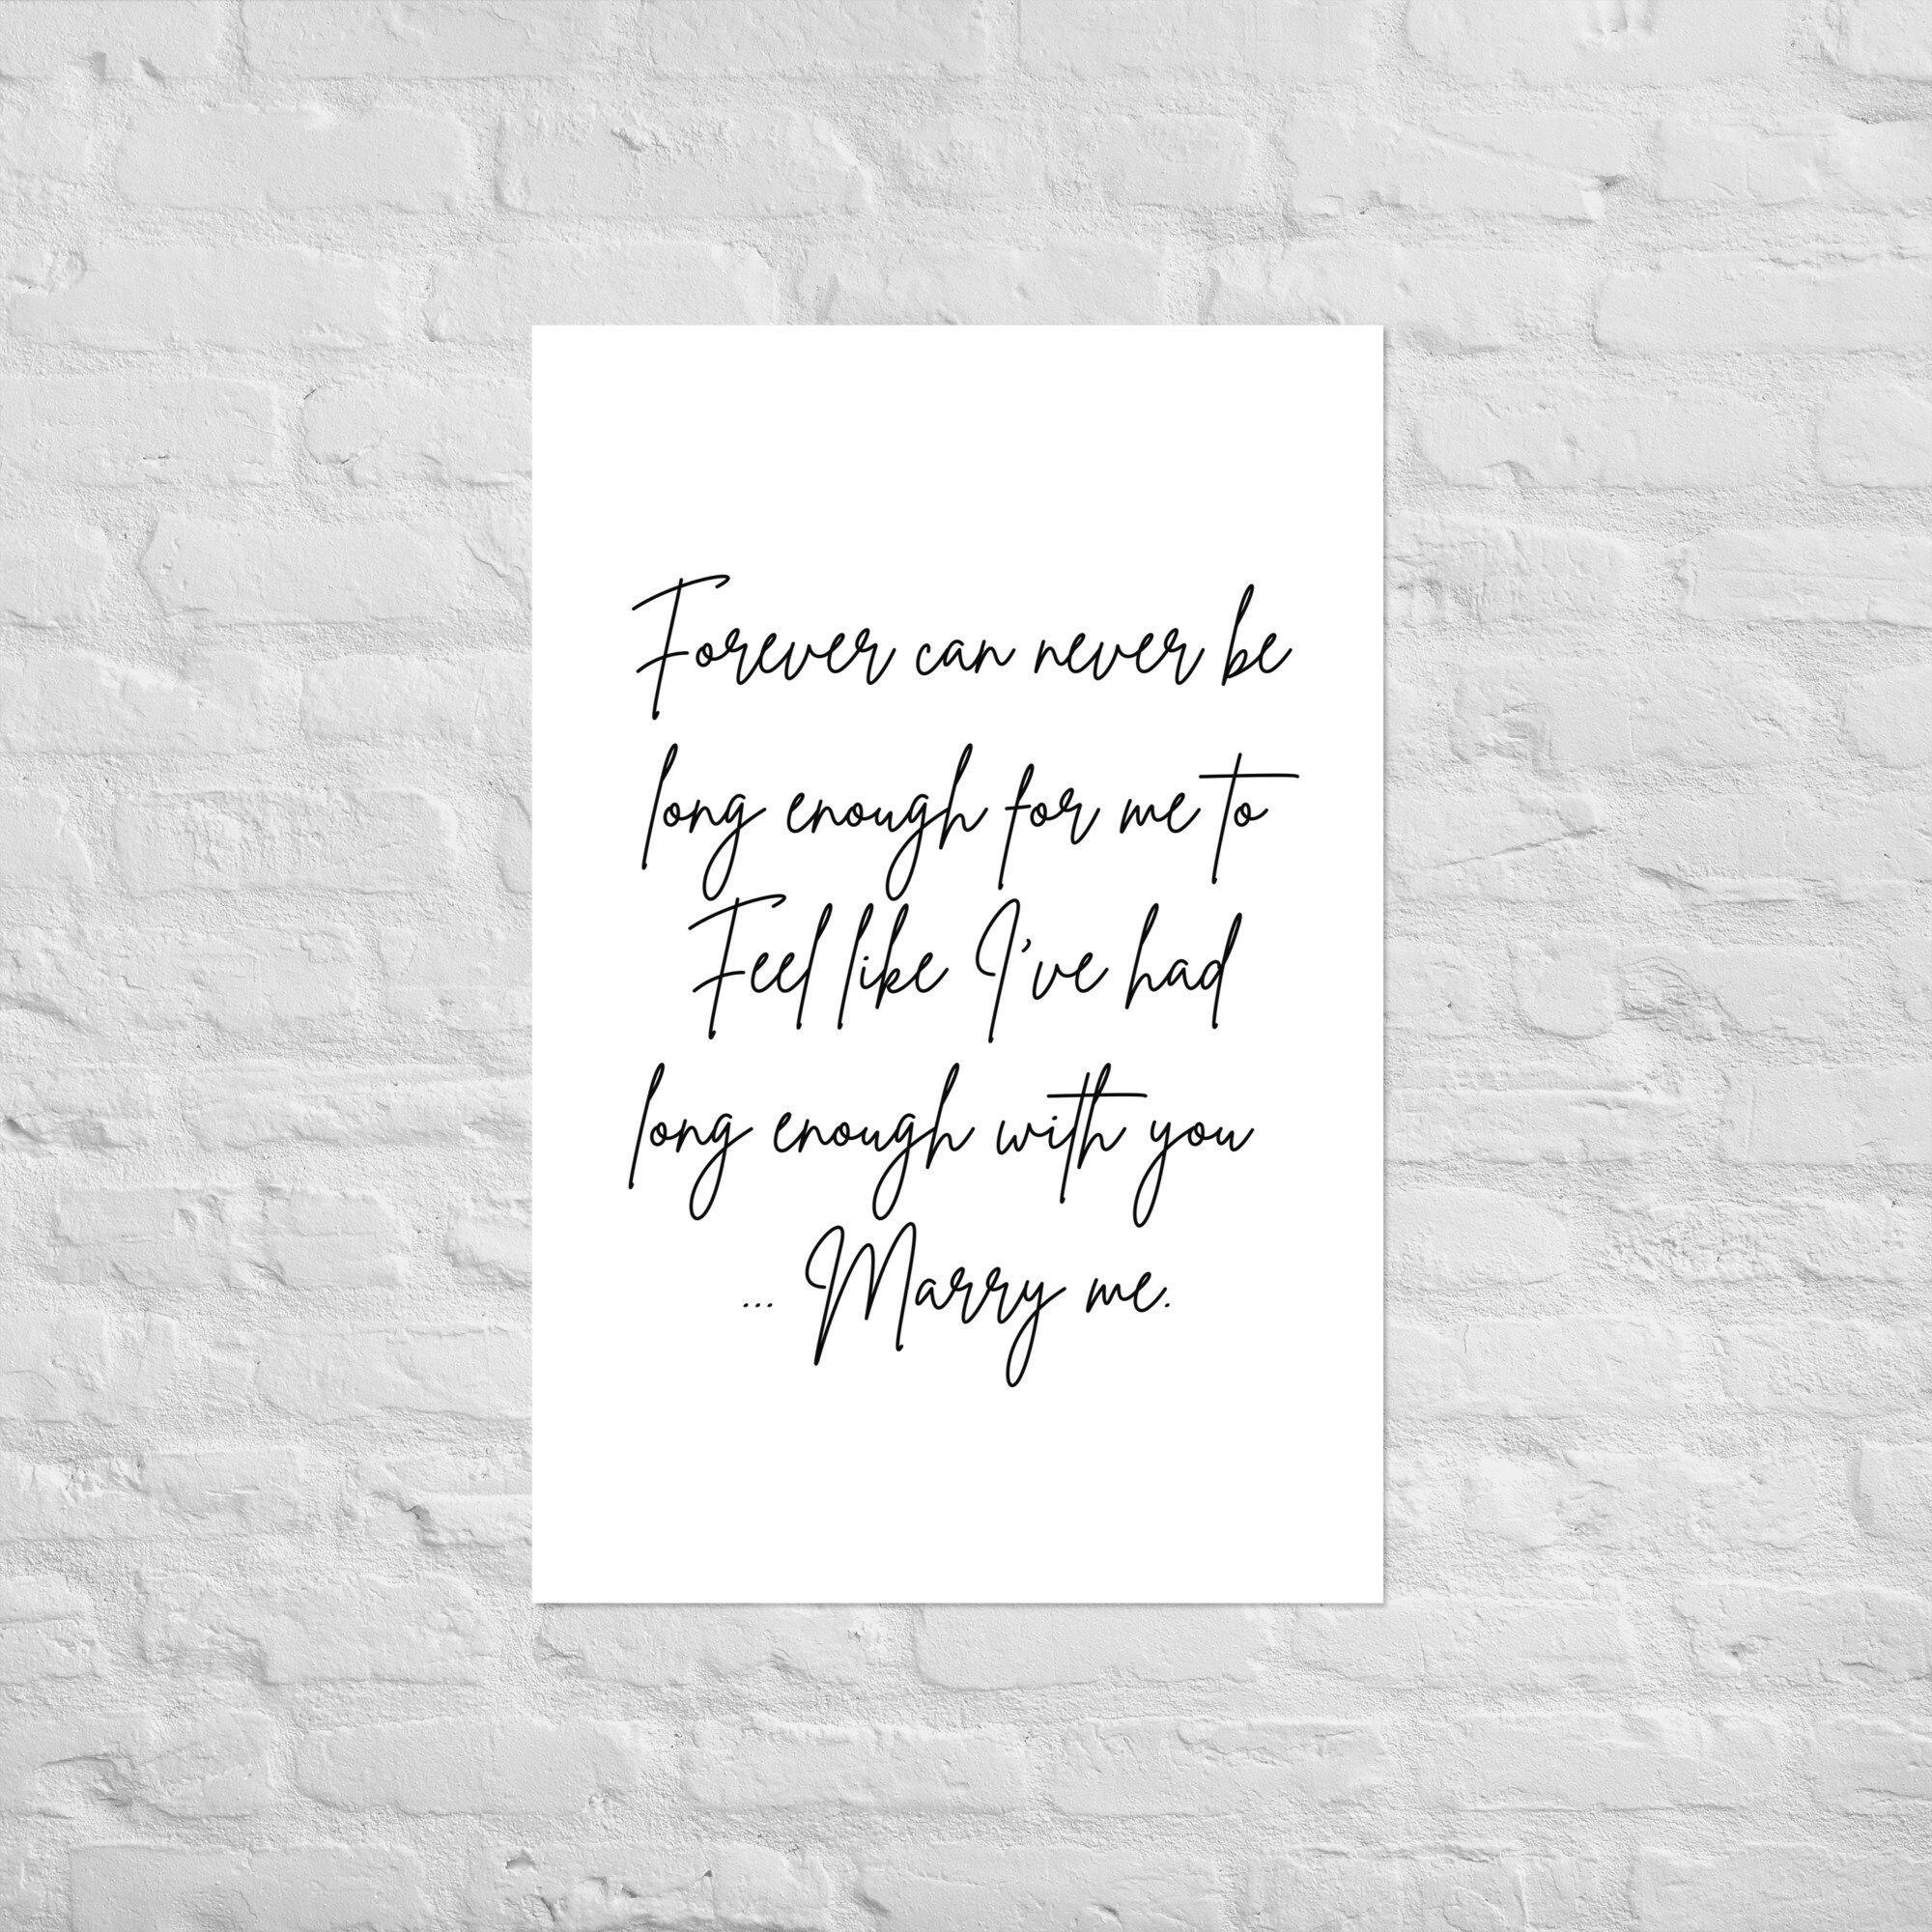 Forever can never be
long enough for me to
Feel like I've had
long enough with you
... Marry me.